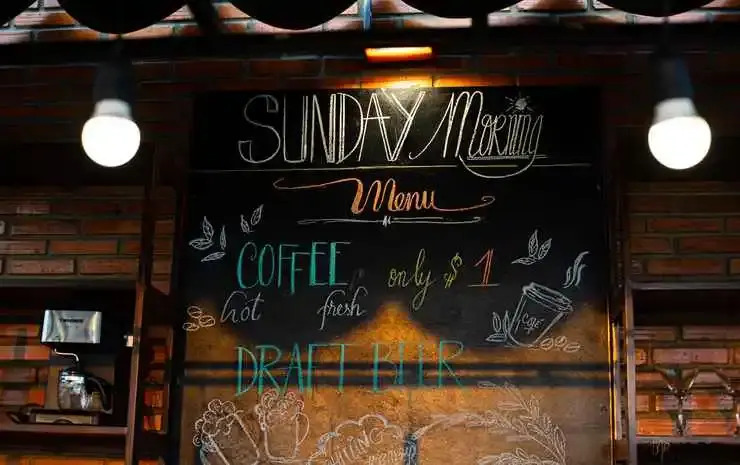 SUNDAY Morning
Menu
COFFEE only $1
hot fresh
DRAFT BEER